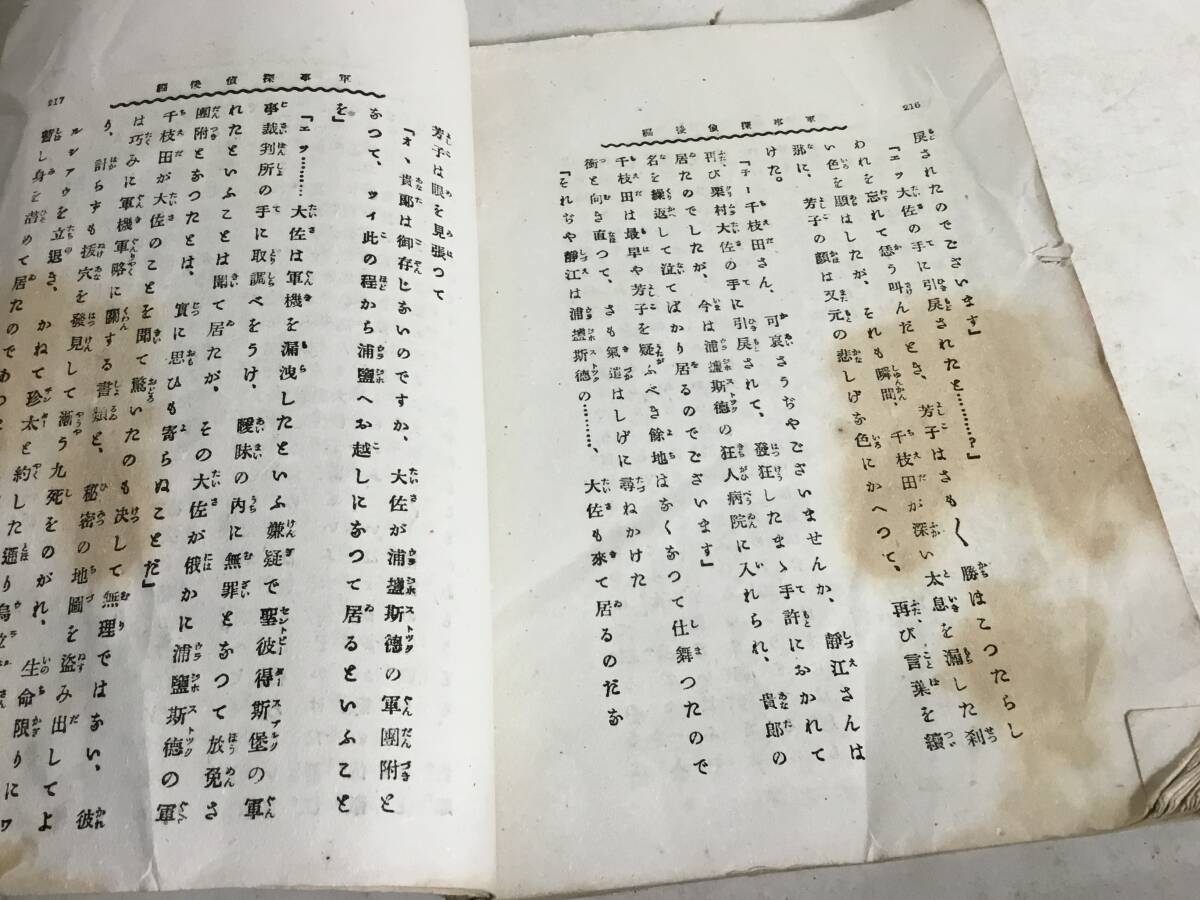 216
軍事探偵後編
戻されたのでございます」
「エッ大佐の手に引戻されたと………?」
われを忘れて恁う叫んだとき、芳子はさも〱勝ほこつたらし
い色を顕はしたが、それも瞬間、千枝田が深い太息を漏した刹
那に、芳子の顔は又元の悲しげな色にかへつて、再び言葉を續
けた。
「チー千枝田さん、可哀さうぢやございませんか、靜江さんは
再び栗村大佐の手に引戻されて、發狂したまゝ手許におかれて
居たのでしたが、今は浦鹽斯德の狂人病院に入れられ、貴郎の
名を繰返して泣てばかり居るのでございます」
千枝田は最早や芳子を疑ふべき餘地はなくなつて仕舞つたので
衝と向き直つて、さも氣遣はしげに尋ねかけた
「それぢや靜江は浦鹽斯德の………、大佐も來て居るのだな
217
軍事探偵後編
芳子は眼を見張つて
「オヽ貴郎は御存じないのですか、大佐が浦鹽斯德の軍團附と
なつて、ツイ此の程から浦鹽へお越しになつて居るといふこと
を」
「エッ………大佐は軍機を漏洩したといふ嫌疑で聖彼得斯堡の軍
事裁判所の手に取調べをうけ、曖昧の内に無罪となつて放免さ
れたといふことは聞て居たが、その大佐が俄かに浦鹽斯德の軍
團附となつたとは、實に思ひも寄らぬことだ」
千枝田が大佐のことを聞て驚いたのも决して無理ではない、彼
は巧みに軍機軍略に關する書類と、秘密の地圖を盗み出してよ
り、計らずも拔穴を發見して漸う九死をのがれ、生命限りにワ
ルシアウを立退き、かねて珍太と約した通り烏
暫し身を潜めて居たのであつた